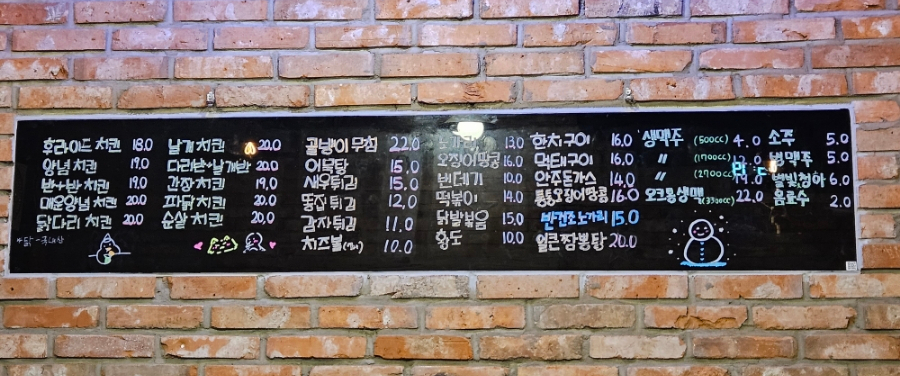 후라이드 치킨 18.0
양념 치킨 19.0
반+반 치킨 19.0
매운양념 치킨 20.0
닭다리 치킨 20.0
날개 치킨 20.0
다리반+날개반 20.0
간장 치킨 19.0
파닭 치킨 20.0
순살 치킨 20.0
골뱅이 무침 22.0
어묵탕 15.0
새우튀김 15.0
똥집 튀김 12.0
감자 튀김 11.0
치즈볼 10.0
13.0
오징어땅콩 16.0
번데기 10.0
떡볶이 14.0
닭발볶음 15.0
황도 10.0
한치구이 16.0
먹태구이 16.0
안주돈가스 14.0
통통오징어땅콩 16.0
반건조노가리 15.0
얼큰짬뽕탕 20.0
생맥주 (500cc) 4.0
〃 (1700cc)
〃 (2700cc)
오크통생맥 (3700cc) 22.0
소주 5.0
병맥주 5.0
별빛청하 6.0
음료수 2.0